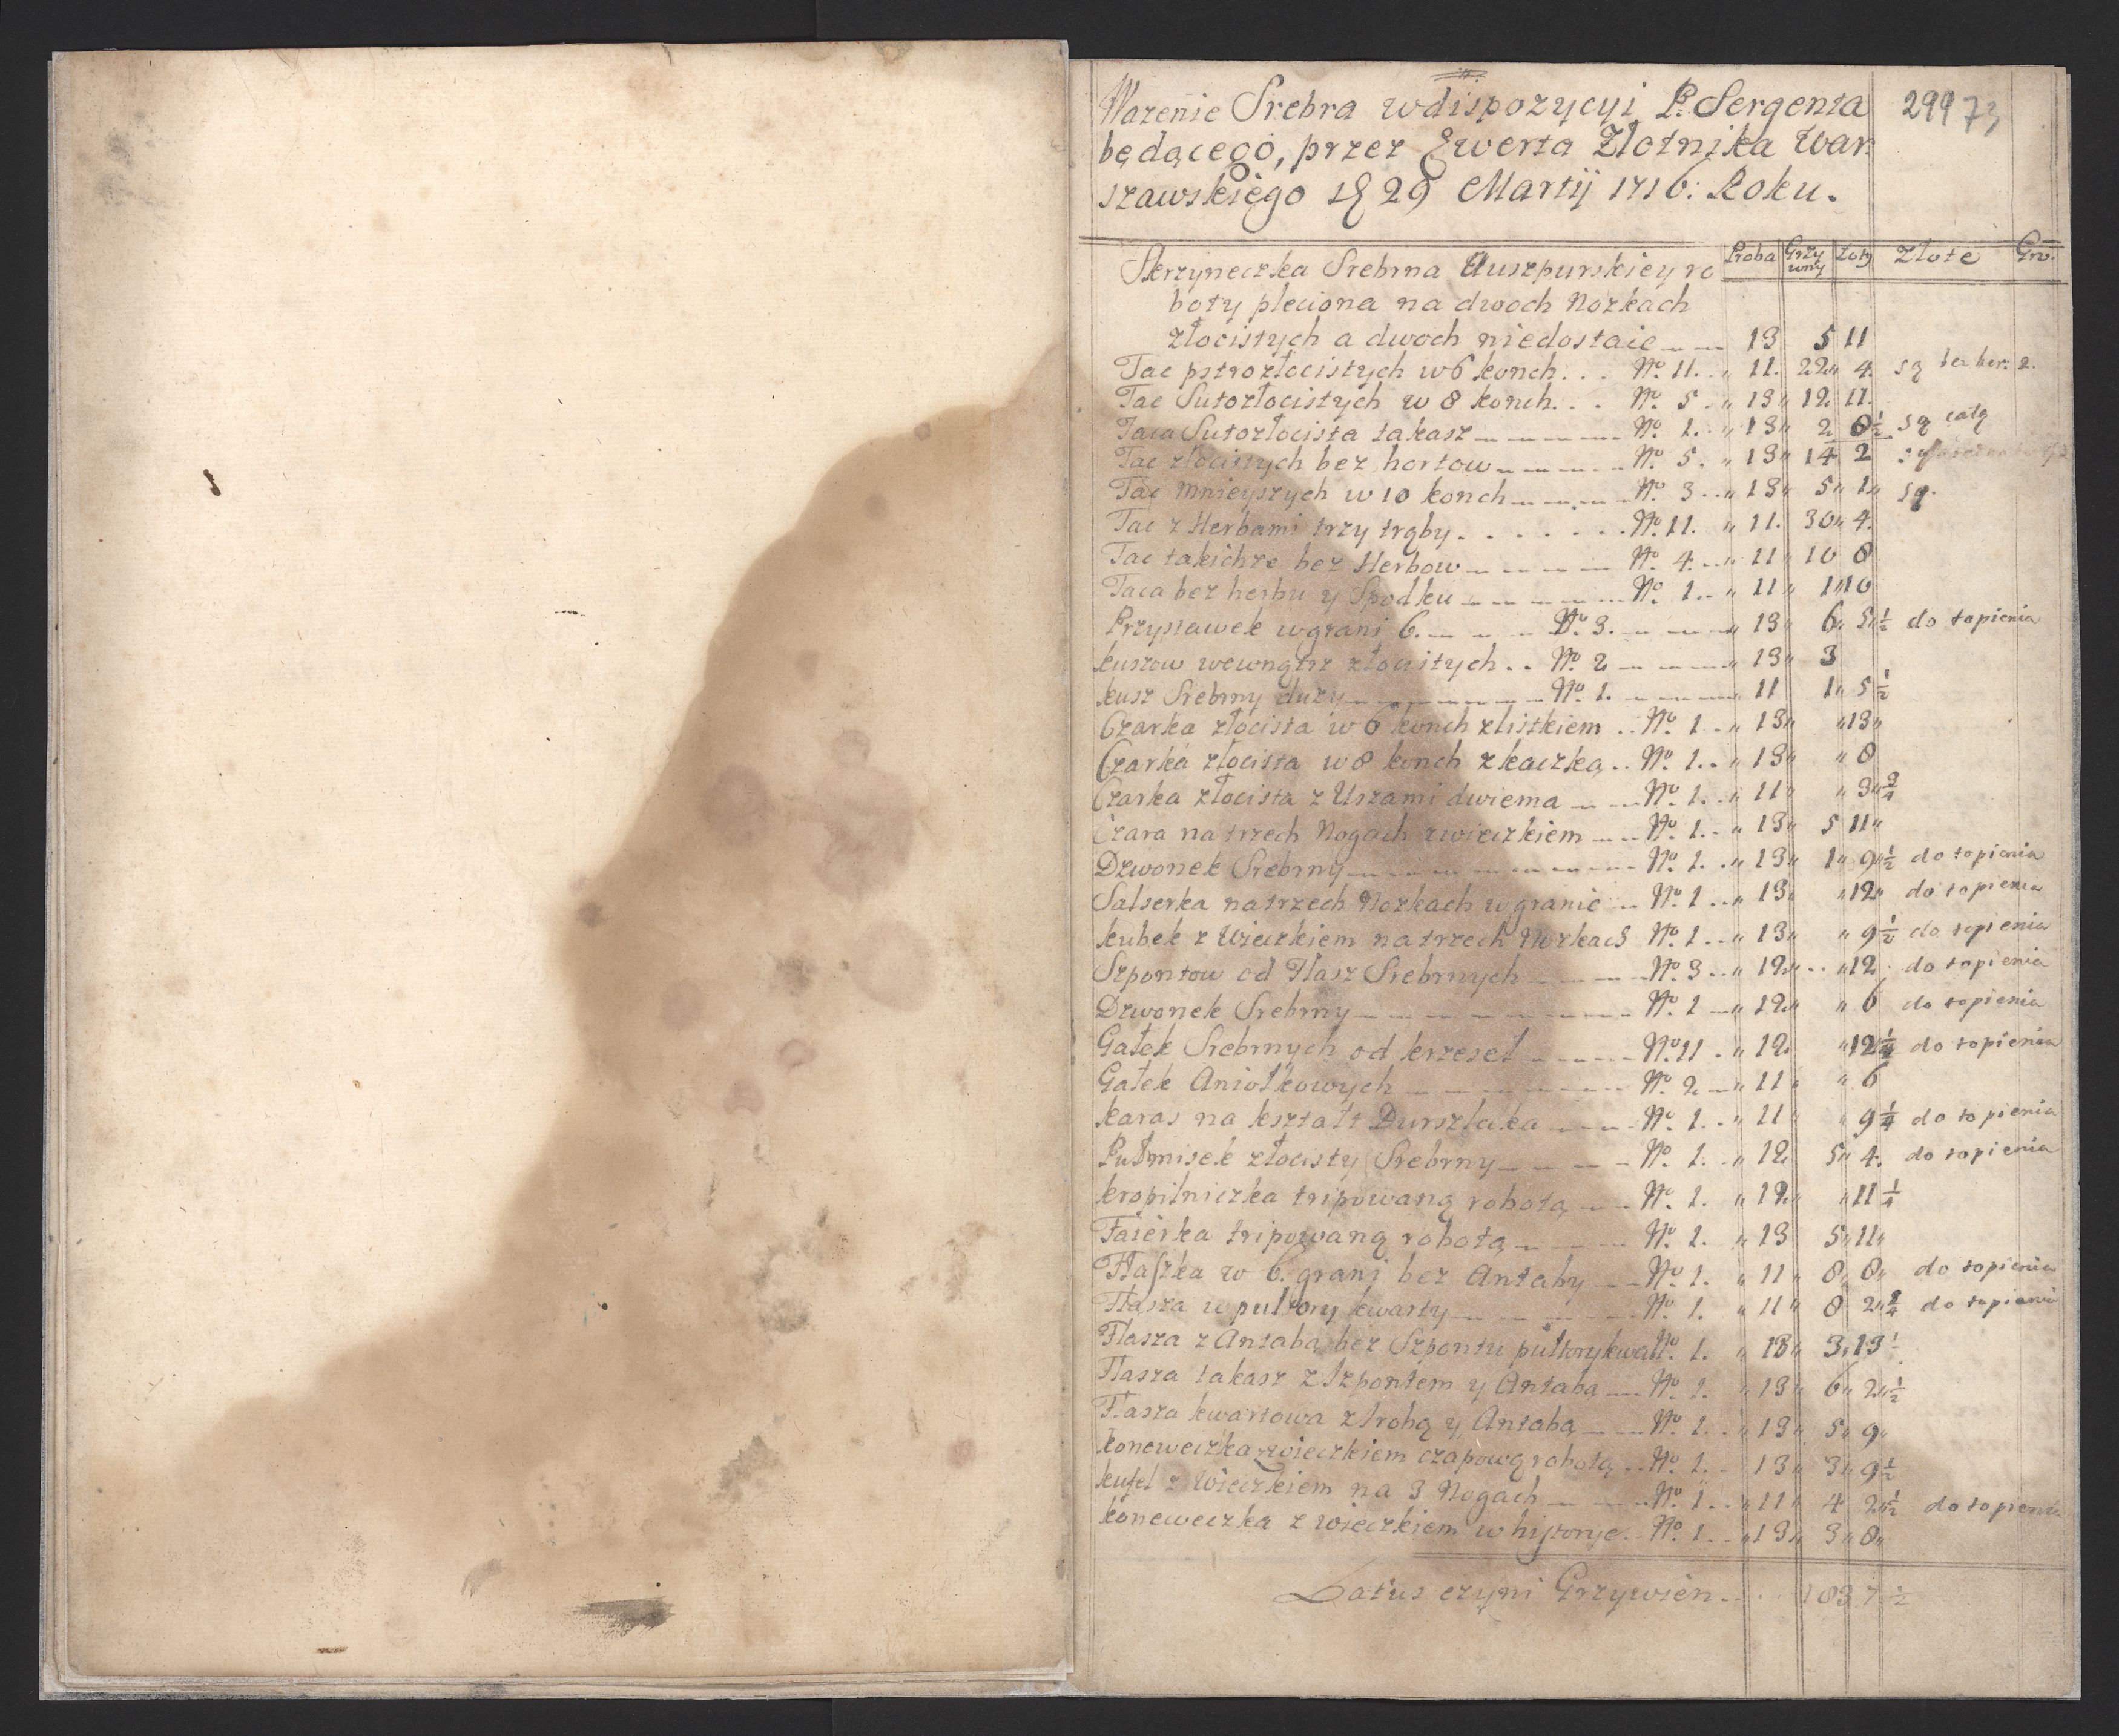 Wazenie Srebra w dispozycyi P. Sergenta
299 73
będącego, przez Ewerta Złotnika War
szawskiego 29 Martij 1716. Roku.
Proba Grzywny Łoty Złote Gro.
Skrzyneczka Srebrna Auszpurskiey ro
boty pleciona na dwoch Nozkach
złocistych a dwoch niedostaie 13 5 11
Tac pstrozłocistych w 6 konch. . . No. 11. 11. 22 4. są bez her. 2.
Tac Sutozłocistych w 8 konch. . . No. 5. 13 12 11.
Taca Sutozłocista takasz No. 1. 13 2 8½ są całą
Tac złocistych bez hortow No. 5. 13 14 2
Tac Mnieyszych w 10 konch No. 3 13 5 1 są.
Tac z Herbami trzy trąby . . . No. 11. 11. 30 4.
Tac takichze bez Herbow No. 4. 11 10 8
Taca bez herbu y Spodku No. 1. 11 1 10
Przystawek w grani 6. No. 3. 13 6 5½ do topienia
kuszow wewnątrz złocistych . . No. 2 13 3
kusz Srebrny duzy No. 1. 11 1 5½
Czarka złocista w 6 konch z listkiem . . No. 1 13 13
Czarka złocista w 8 konch z kaczką . . No. 1. 13 8
Czarka złocista z Uszami dwiema No. 1. 11 3¾
Czara na trzech Nogach z wieczkiem No. 1. 13 5 11
Dzwonek Srebrny No. 1. 13 1 9½ do topienia
Salserka na trzech Nozkach w granie No. 1 13 12 do topienia
kubek z Wieczkiem na trzech Nozkach No. 1 13 9½ do topienia
Szpontow od Flasz Srebrnych No. 3 12 12 do topienia
Dzwonek Srebrny No. 1 12 6 do topienia
Gałek Srebrnych od krzeseł No. 11 12 12¼ do topienia
Gałek Aniołkowych No. 2 11 6
karas na kształt Durszlaka No. 1. 11 9¼ do topienia
Pułmisek złocisty Srebrny No. 1. 12 5 4. do topienia
kropilniczka tripowaną robotą No. 1. 12 11¼
Faierka tripowaną robotą No. 1. 13 5 11
Flaszka w 6. grani bez Antaby No. 1. 11 8 8 do topienia
Flasza w pultory kwarty No. 1. 11 8 2¾ do topienia
Flasza z Antabą bez Szpontu pułtory kwa No. 1. 13 3 13
Flasza takasz z Szpontem y Antabą No. 1. 13 6 2½
Flasza kwartowa z srobą y Antabą No. 1. 13 5 9
koneweczka z wieczkiem czapową robotą No. 1. 13 3 9½
kufel z Wieczkiem na 3 Nogach No. 1. 11 4 2½ do topienia
koneweczka z wieczkiem w historye. No. 1. 13 3 8
Latus czyni Grzywien 183 7½